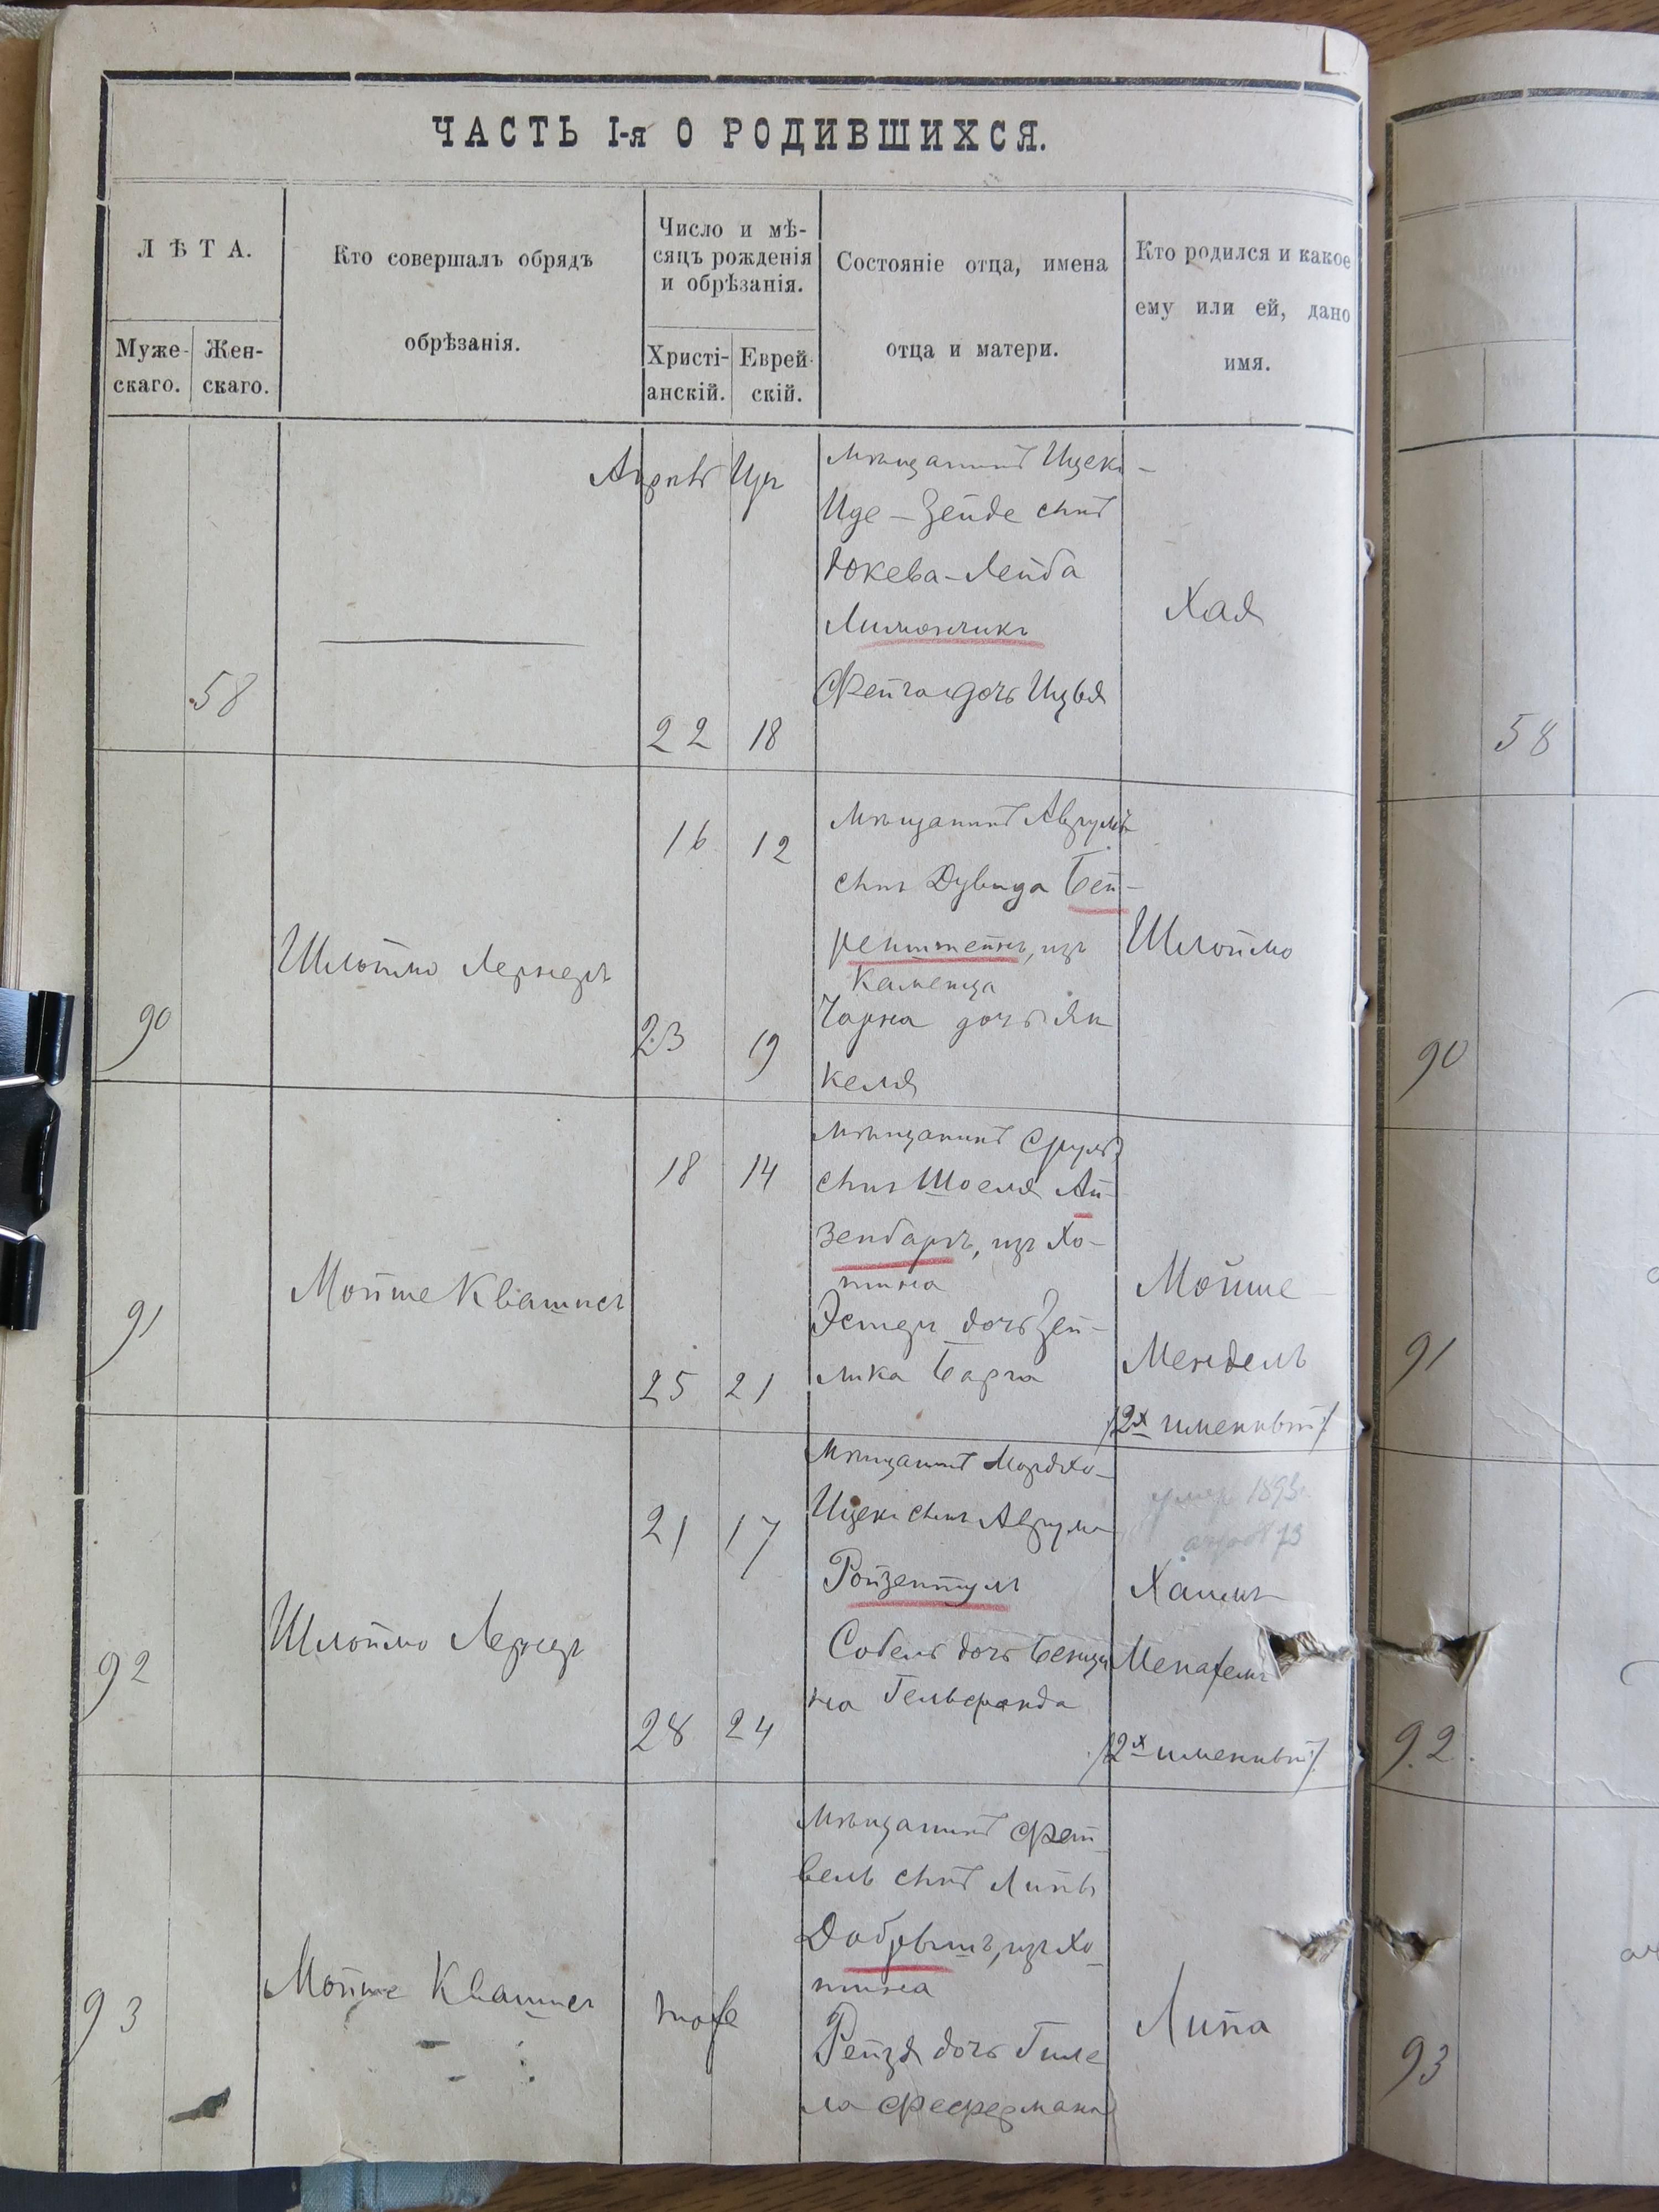 ЧАСТЬ I-я О РОДИВШИХСЯ.
ЛѢТА.
Муже-
скаго.
Жен-
скаго.
Кто совершалъ обрядъ
обрѣзанія.
Число и мѣ-
сяцъ рожденія
и обрѣзанія.
Христі-
анскій.
Еврей-
скій.
Состояніе отца, имена
отца и матери.
Кто родился и какое
ему или ей, дано
имя.
58
Апрѣль Іяръ
22 18
Мѣщанинъ Ицекъ-
Иде-Зейде сынъ
Юкева-Лейба
Лимончикъ
Фейга дочь Ицья
Хая
58
90
Шлоймо Лернеръ
16 12
23 19
Мѣщанинъ Аврумъ
сынъ Дувида Бей-
ренштейнъ, изъ
Каменца
Чарна дочь Ян
келя
Шлоймо
90
91
Мойше Квашнеръ
18 14
25 21
Мѣщанинъ Сруль
сынъ Шоеля Ай-
зенбаргъ, изъ Хо-
тина
Эстеръ дочь Зей-
лика Барга
Мойше-
Мендель
/2х именный/
91
92
Шлоймо Лернеръ
21 17
28 24
Мѣщанинъ Мордхо-
Ицекъ сынъ Аврума
Ройзентулъ
Собель дочь Бенци
на Гельфанда
умеръ 1893
Хаимъ
Менахемъ
/2х именный/
92
93
Мойше Квашнеръ
тоже
Мѣщанинъ Фей-
вель сынъ Липы
Добрышъ, изъ Хо-
тина
Рейзя дочь Гиле
ла Фефермана
Липа
93